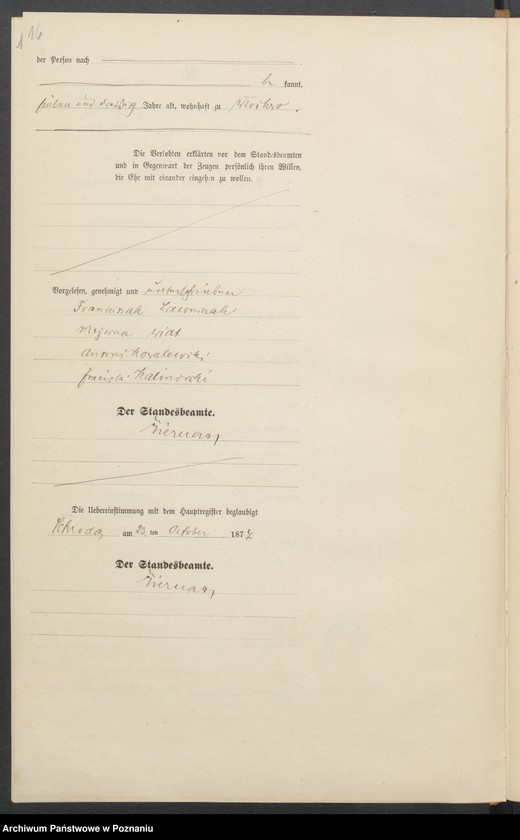 116
der Person nach
be kannt,
sieben und dreißig Jahre alt, wohnhaft zu
Die Verlobten erklärten vor dem Standesbeamten
und in Gegenwart der Zeugen persönlich ihren Willen,
die Ehe mit einander eingehen zu wollen.
Vorgelesen, genehmigt und unterschrieben
Franciszek
Antoni Kowalewski
Kalinowski
Der Standesbeamte.
Die Uebereinstimmung mit dem Hauptregister beglaubigt
am 23 ten October 187
Der Standesbeamte.
Archiwum Państwowe w Poznaniu